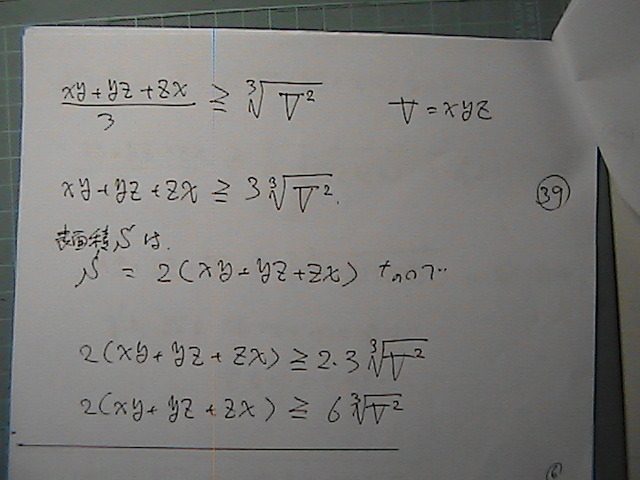 (xy+yz+zx)/3 ≧ ∛V² V=xyz
xy+yz+zx ≧ 3∛V². ㊴
表面積Sは.
S = 2(xy+yz+zx) なので..
2(xy+yz+zx) ≧ 2・3∛V²
2(xy+yz+zx) ≧ 6∛V²